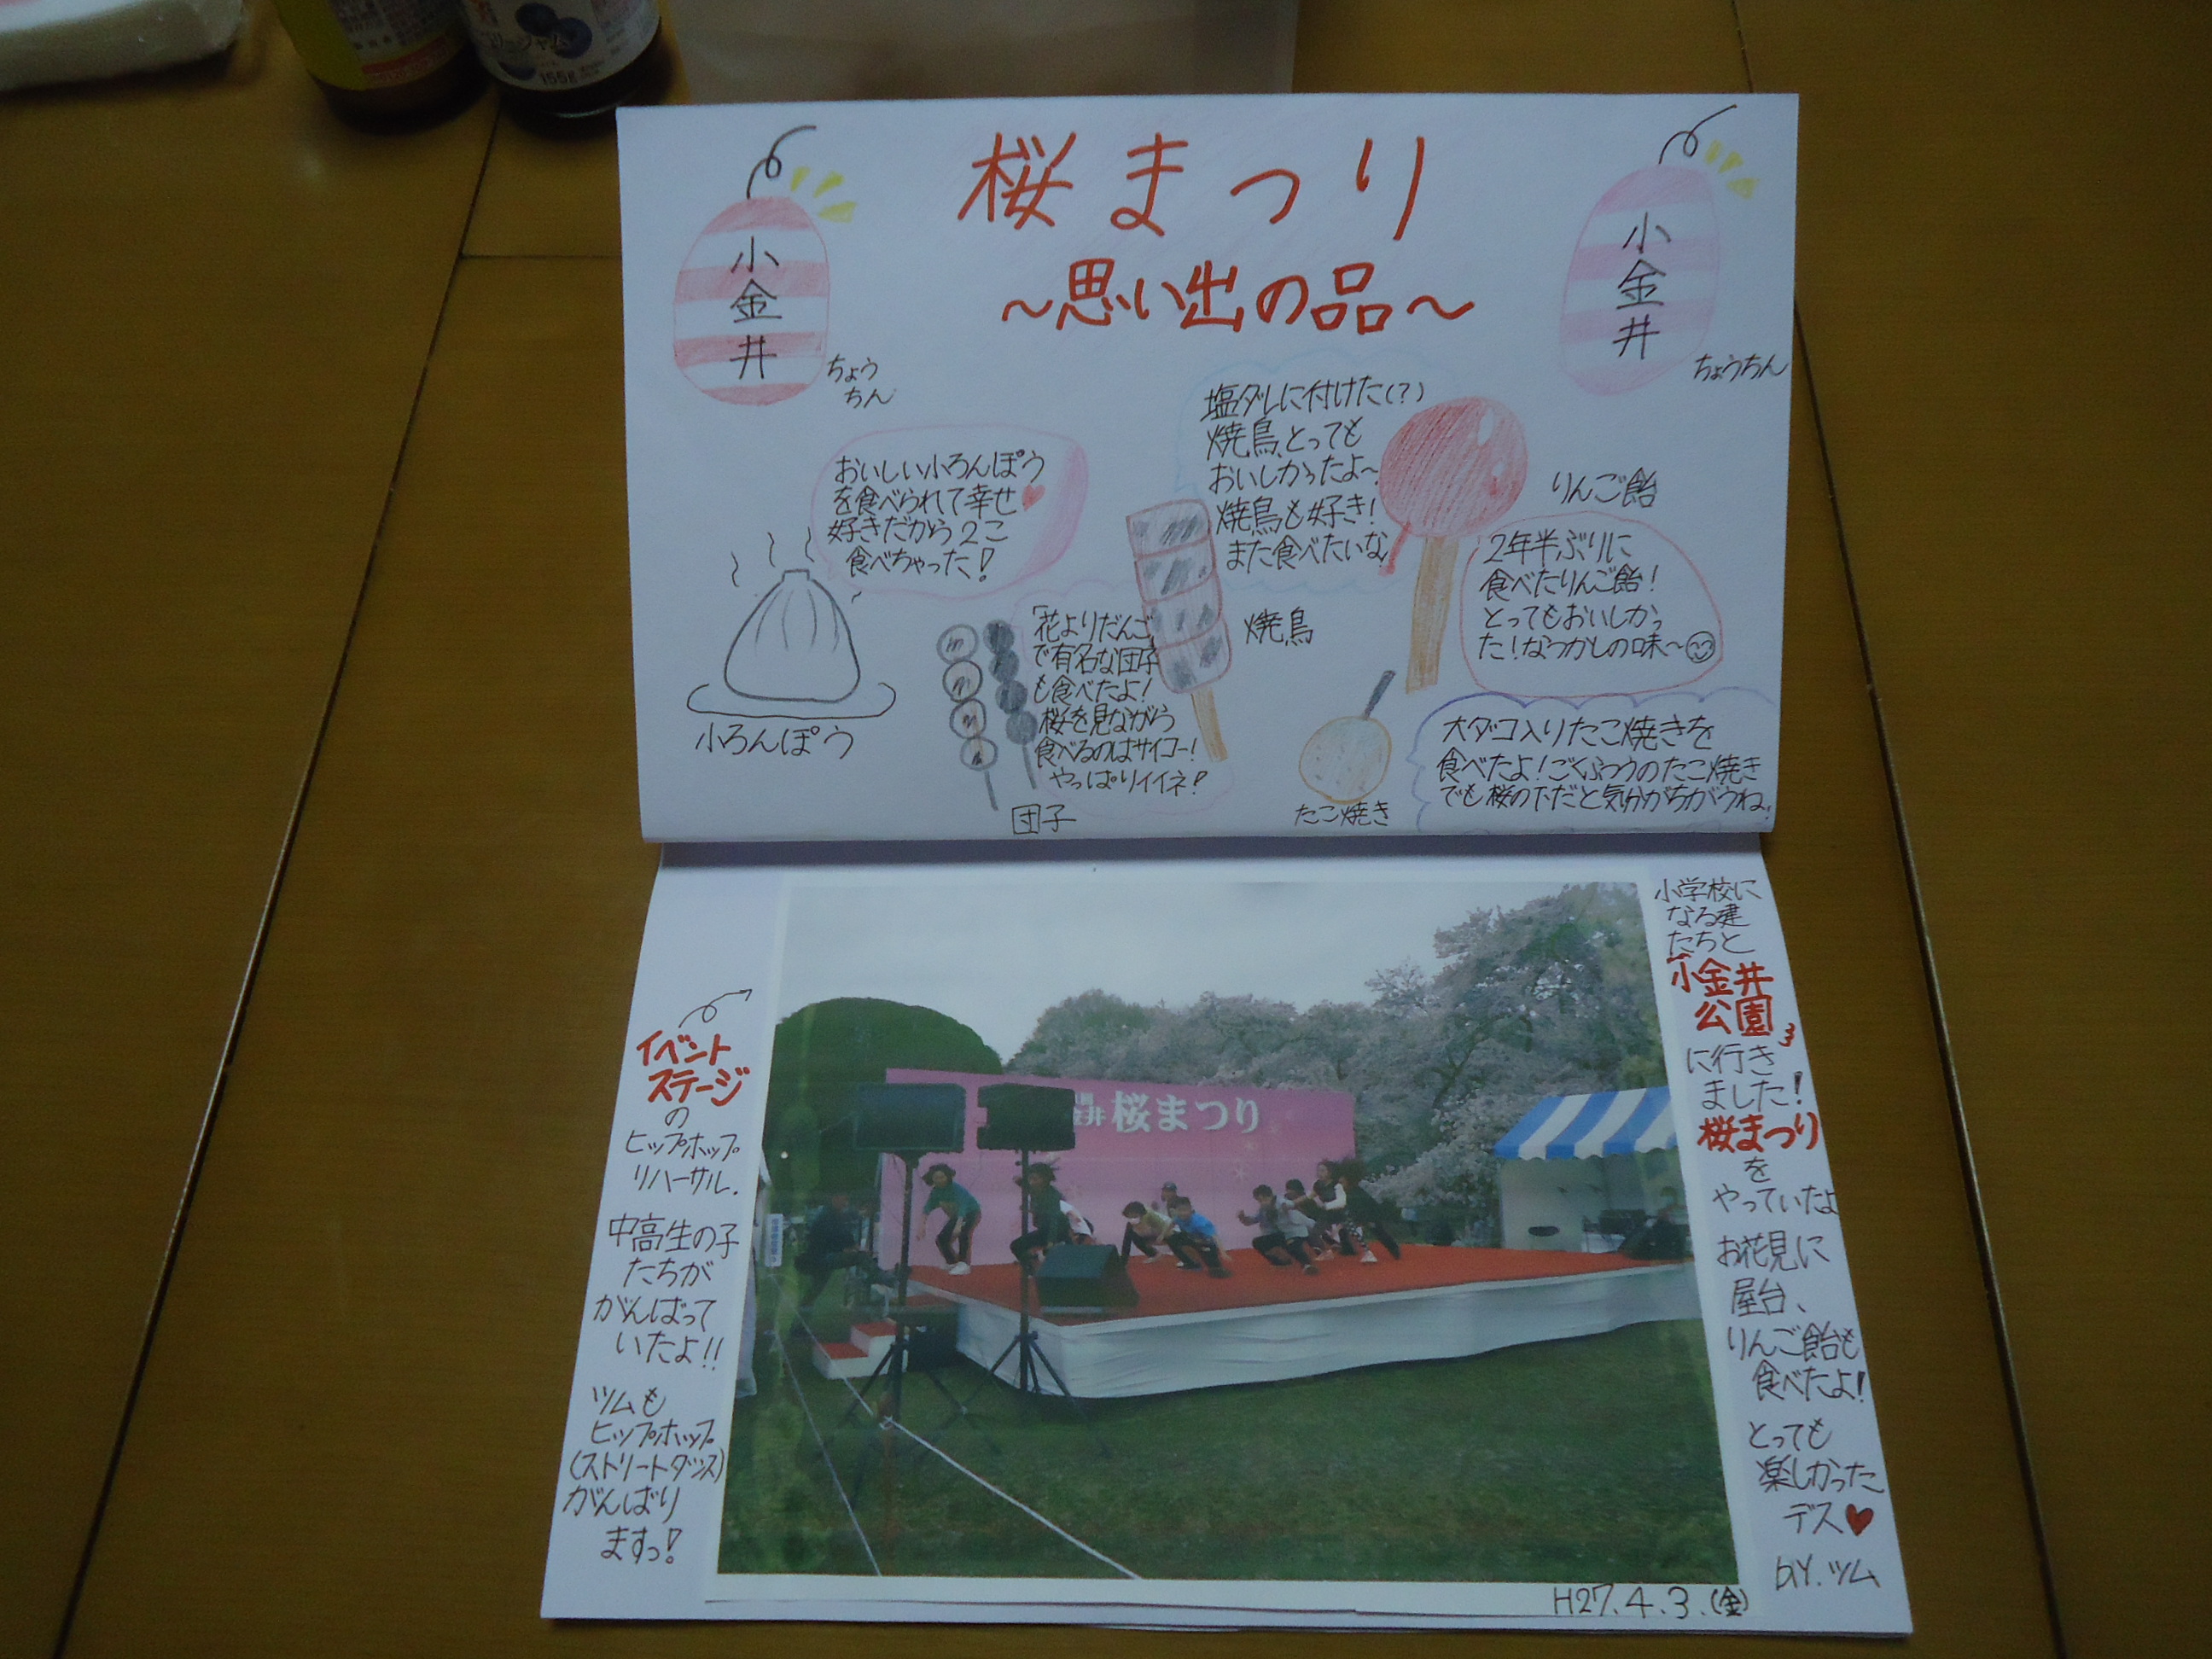 ジャム
155g
桜まつり
～思い出の品～
小金井
ちょう
ちん
小金井
ちょうちん
おいしい小ろんぽう
を食べられて幸せ♥
好きだから2こ
食べちゃった!
小ろんぽう
「花よりだんご」
で有名な団子
も食べたよ!
桜を見ながら
食べるのはサイコー!
やっぱりイイネ!
団子
塩ダレに付けた(?)
焼鳥、とっても
おいしかったよ～
焼鳥も好き!
また食べたいな
焼鳥
りんご飴
2年半ぶりに
食べたりんご飴!
とってもおいしかっ
た!なつかしの味～
たこ焼き
大ダコ入りたこ焼きを
食べたよ!ごくふつうのたこ焼き
でも桜の下だと気分がちがうね
イベント
ステージ
の
ヒップホップ
リハーサル.
中高生の子
たちが
がんばって
いたよ!!
ツムも
ヒップホップ
(ストリートダンス)
がんばり
ますっ!
金井 桜まつり
小学校に
なる建
たちと
小金井
公園
に行き
ました!
桜まつり
を
やっていたよ
お花見に
屋台、
りんご飴も
食べたよ!
とっても
楽しかった
デス♥
by.ツム
H27.4.3.(金)